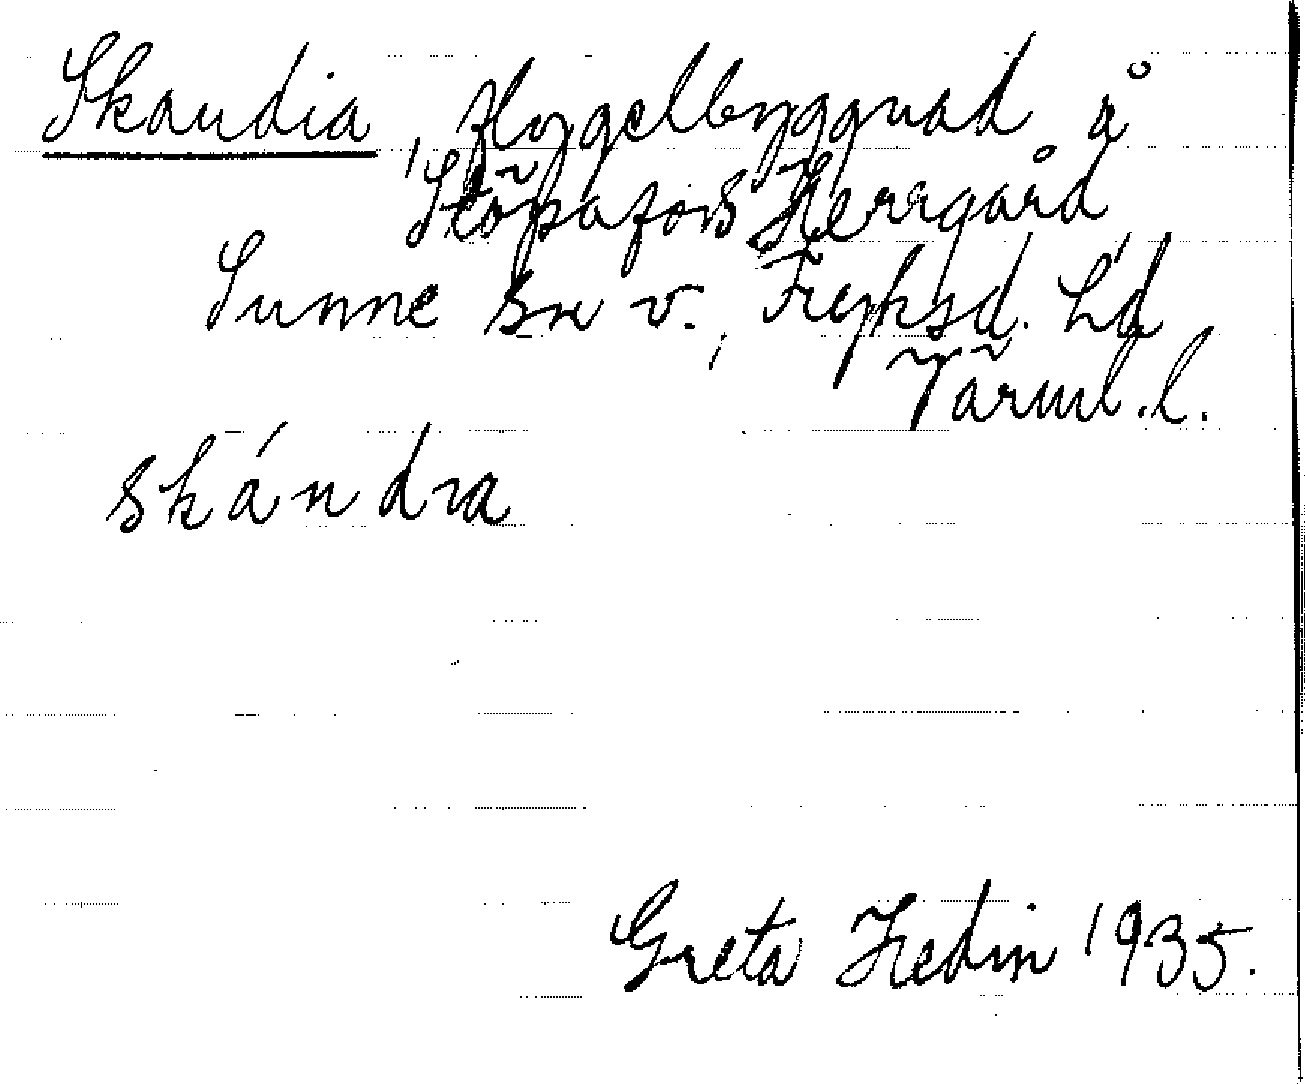 Skandia, flygelbyggnad å
Stöpafors Herrgård
Sunne sn v., Fryksd. hd
Värml. l.
skándıa
Greta Hedin 1935.